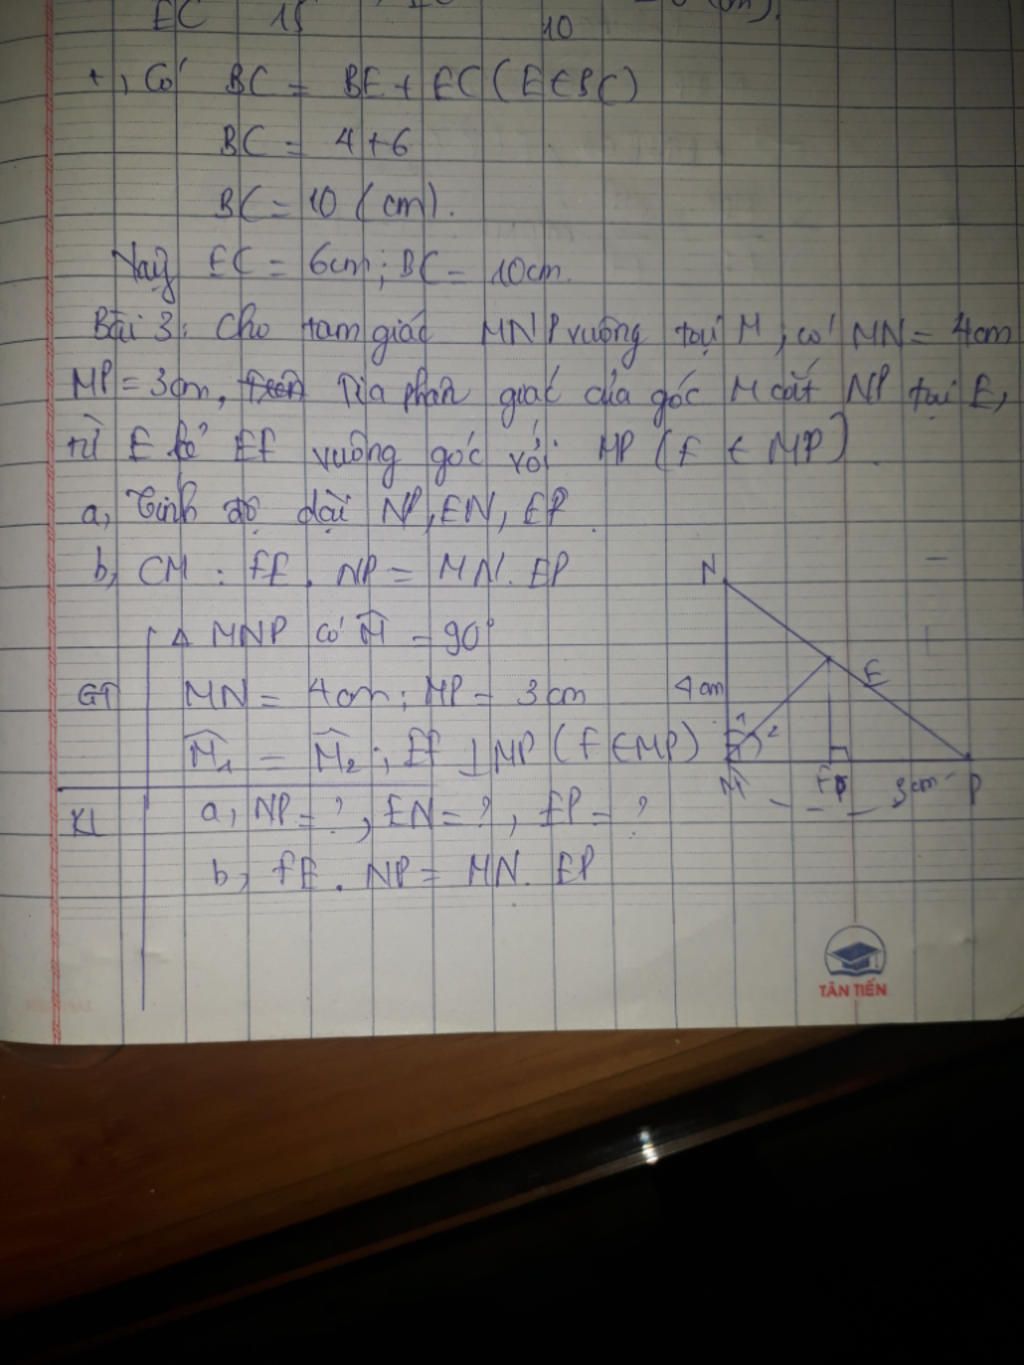 EC 15 10 (cm).
+, Có BC = BE + EC (E ∈ BC)
BC = 4+6
BC = 10 (cm).
Vậy EC = 6cm; BC = 10cm.
Bài 3: Cho tam giác MNP vuông tại M, có MN = 4cm
MP = 3cm, Tia phân giác của góc M cắt NP tại E,
từ E kẻ EF vuông góc với MP (F ∈ MP)
a, Tính độ dài NP, EN, EP.
b, CM: FE . NP = MN . EP
Δ MNP có M̂ = 90°
GT MN = 4cm; MP = 3cm
M̂₁ = M̂₂; EF ⊥ MP (F ∈ MP)
KL a, NP = ?, EN = ?, EP = ?
b, FE . NP = MN . EP
N
E
4cm
1 2
M F 3cm P
TÂN TIẾN